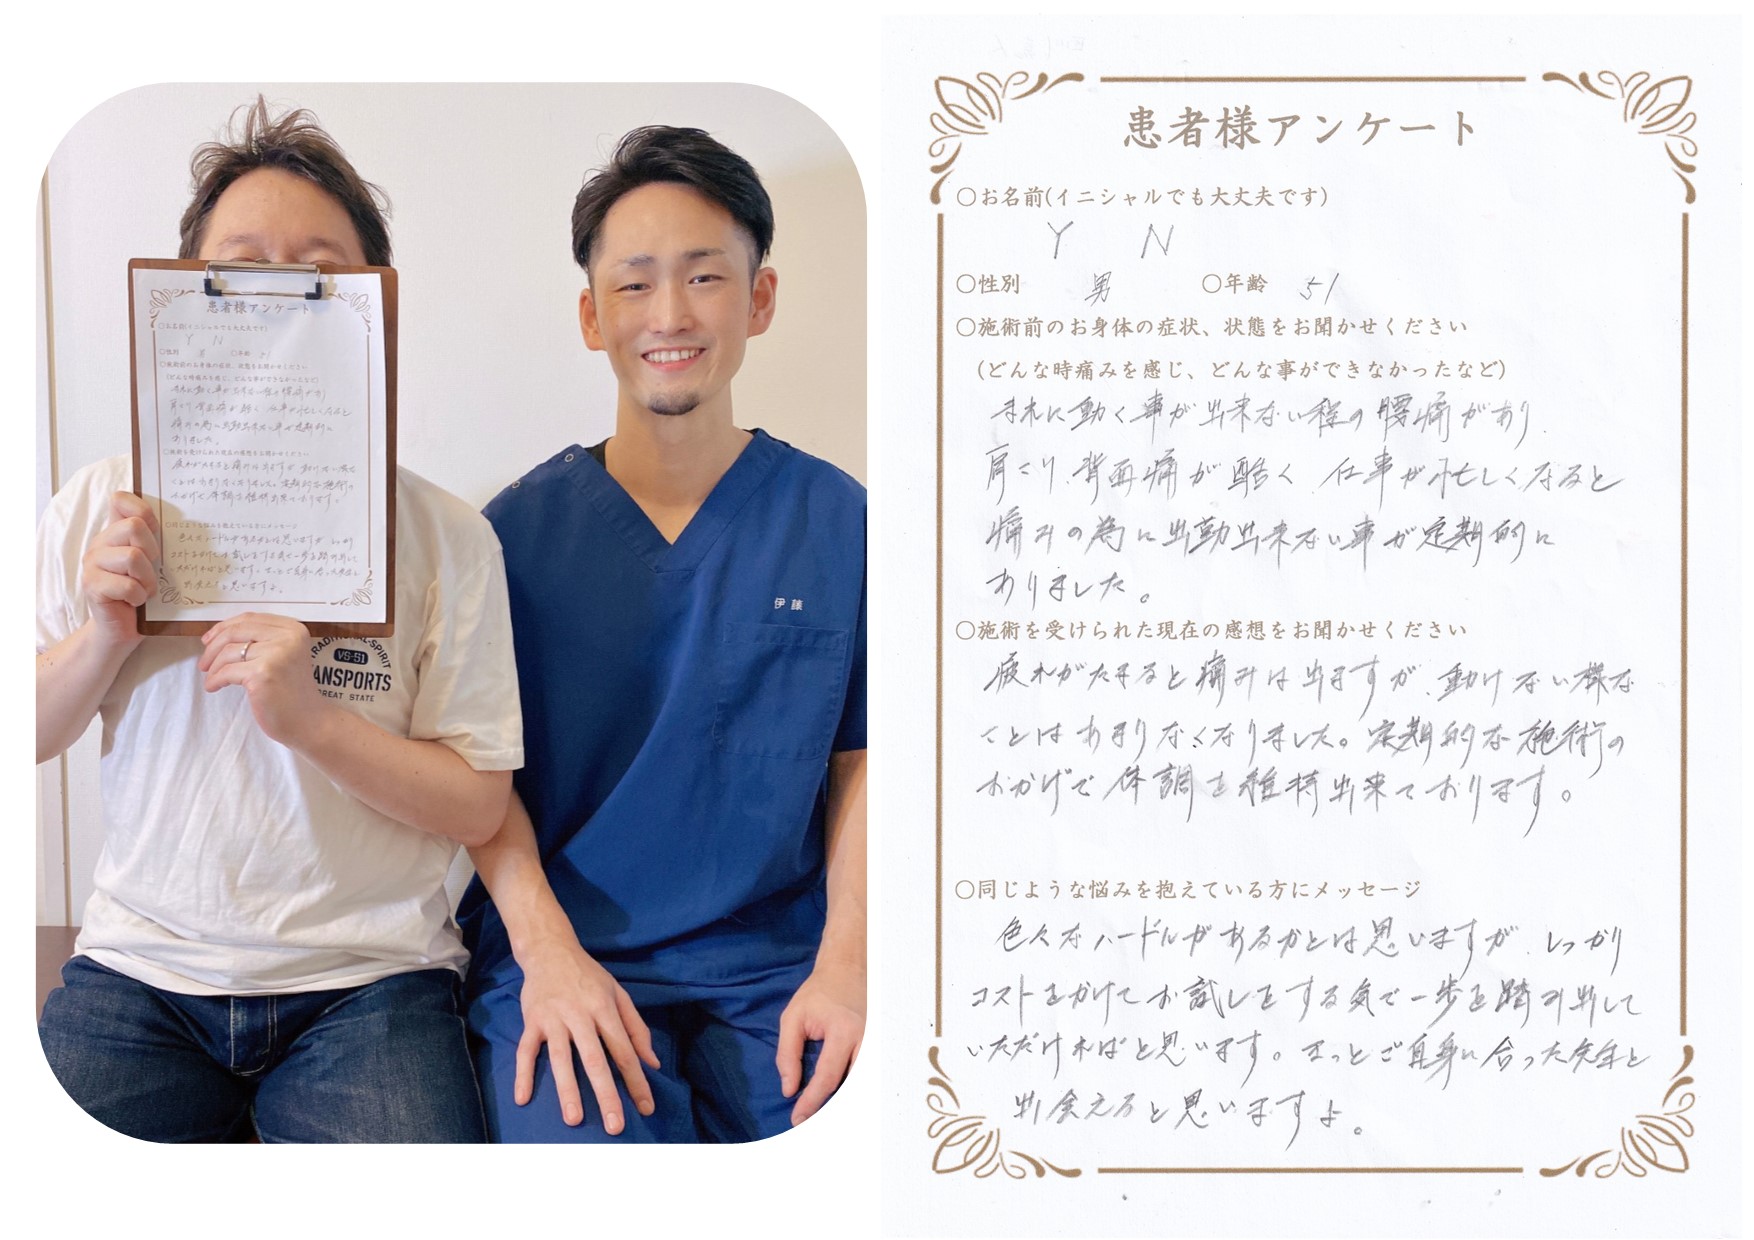 患者様アンケート
○お名前(イニシャルでも大丈夫です)
Y N
○性別 男 ○年齢 51
○施術前のお身体の症状、状態をお聞かせください
(どんな時痛みを感じ、どんな事ができなかったなど)
まれに動く事が出来ない程の腰痛があり
肩こり、背面痛が酷く 仕事が忙しくなると
痛みの為に出勤出来ない事が定期的に
ありました。
○施術を受けられた現在の感想をお聞かせください
疲れがたまると痛みは出ますが、動けない様な
ことはあまりなくなりました。定期的な施術の
おかげで体調を維持出来ております。
○同じような悩みを抱えている方にメッセージ
色々なハードルがあるかとは思いますが、しっかり
コストをかけてお試しをする気で一歩を踏み出して
いただければと思います。きっとご自身に合った先生と
出会えると思いますよ。
伊藤
TRADITIONAL-SPIRIT
VS-51
ANSPORTS
GREAT STATE